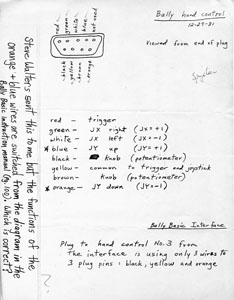 Bally hand control
12-29-81
viewed from end of plug
red
green
white
blue
not used
black
yellow
brown
orange
red - trigger
green - JX right (JX=+1)
white - JX left (JX=-1)
* blue - JY up (JY=+1)
black - knob (potentiometer)
yellow - common to trigger and joystick
brown - knob (potentiometer)
* orange - JY down (JY=-1)
Bally Basic Interface
Plug to hand control No. 3 from
the interface is using only 3 wires to
3 plug pins: black, yellow and orange
Steve Walters sent this to me but the functions of the
orange + blue wires are switched from the diagram in the
Bally Basic instruction manual (pg. 100). Which is correct?